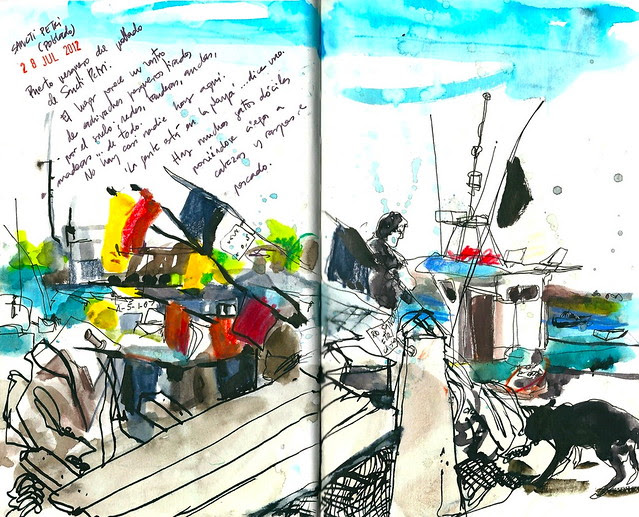 SANCTI PETRI
(POBLADO)
28 JUL 2012
Puerto pesquero de poblado
de Sancti Petri.
El lugar parece un rastro
de cachivaches pesqueros tirados
por el suelo: redes, tambores, anclas,
maderas... de todo.
No hay casi nadie hoy aquí.
"La gente está en la playa"... dice uno.
Hay muchos gatos dóciles
poniéndose ciegos a
cabezas y raspas de
pescado.